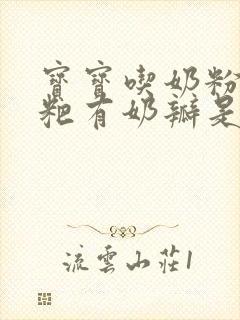 寶寶喫奶粉
粑有奶瓣是
流雲山莊1